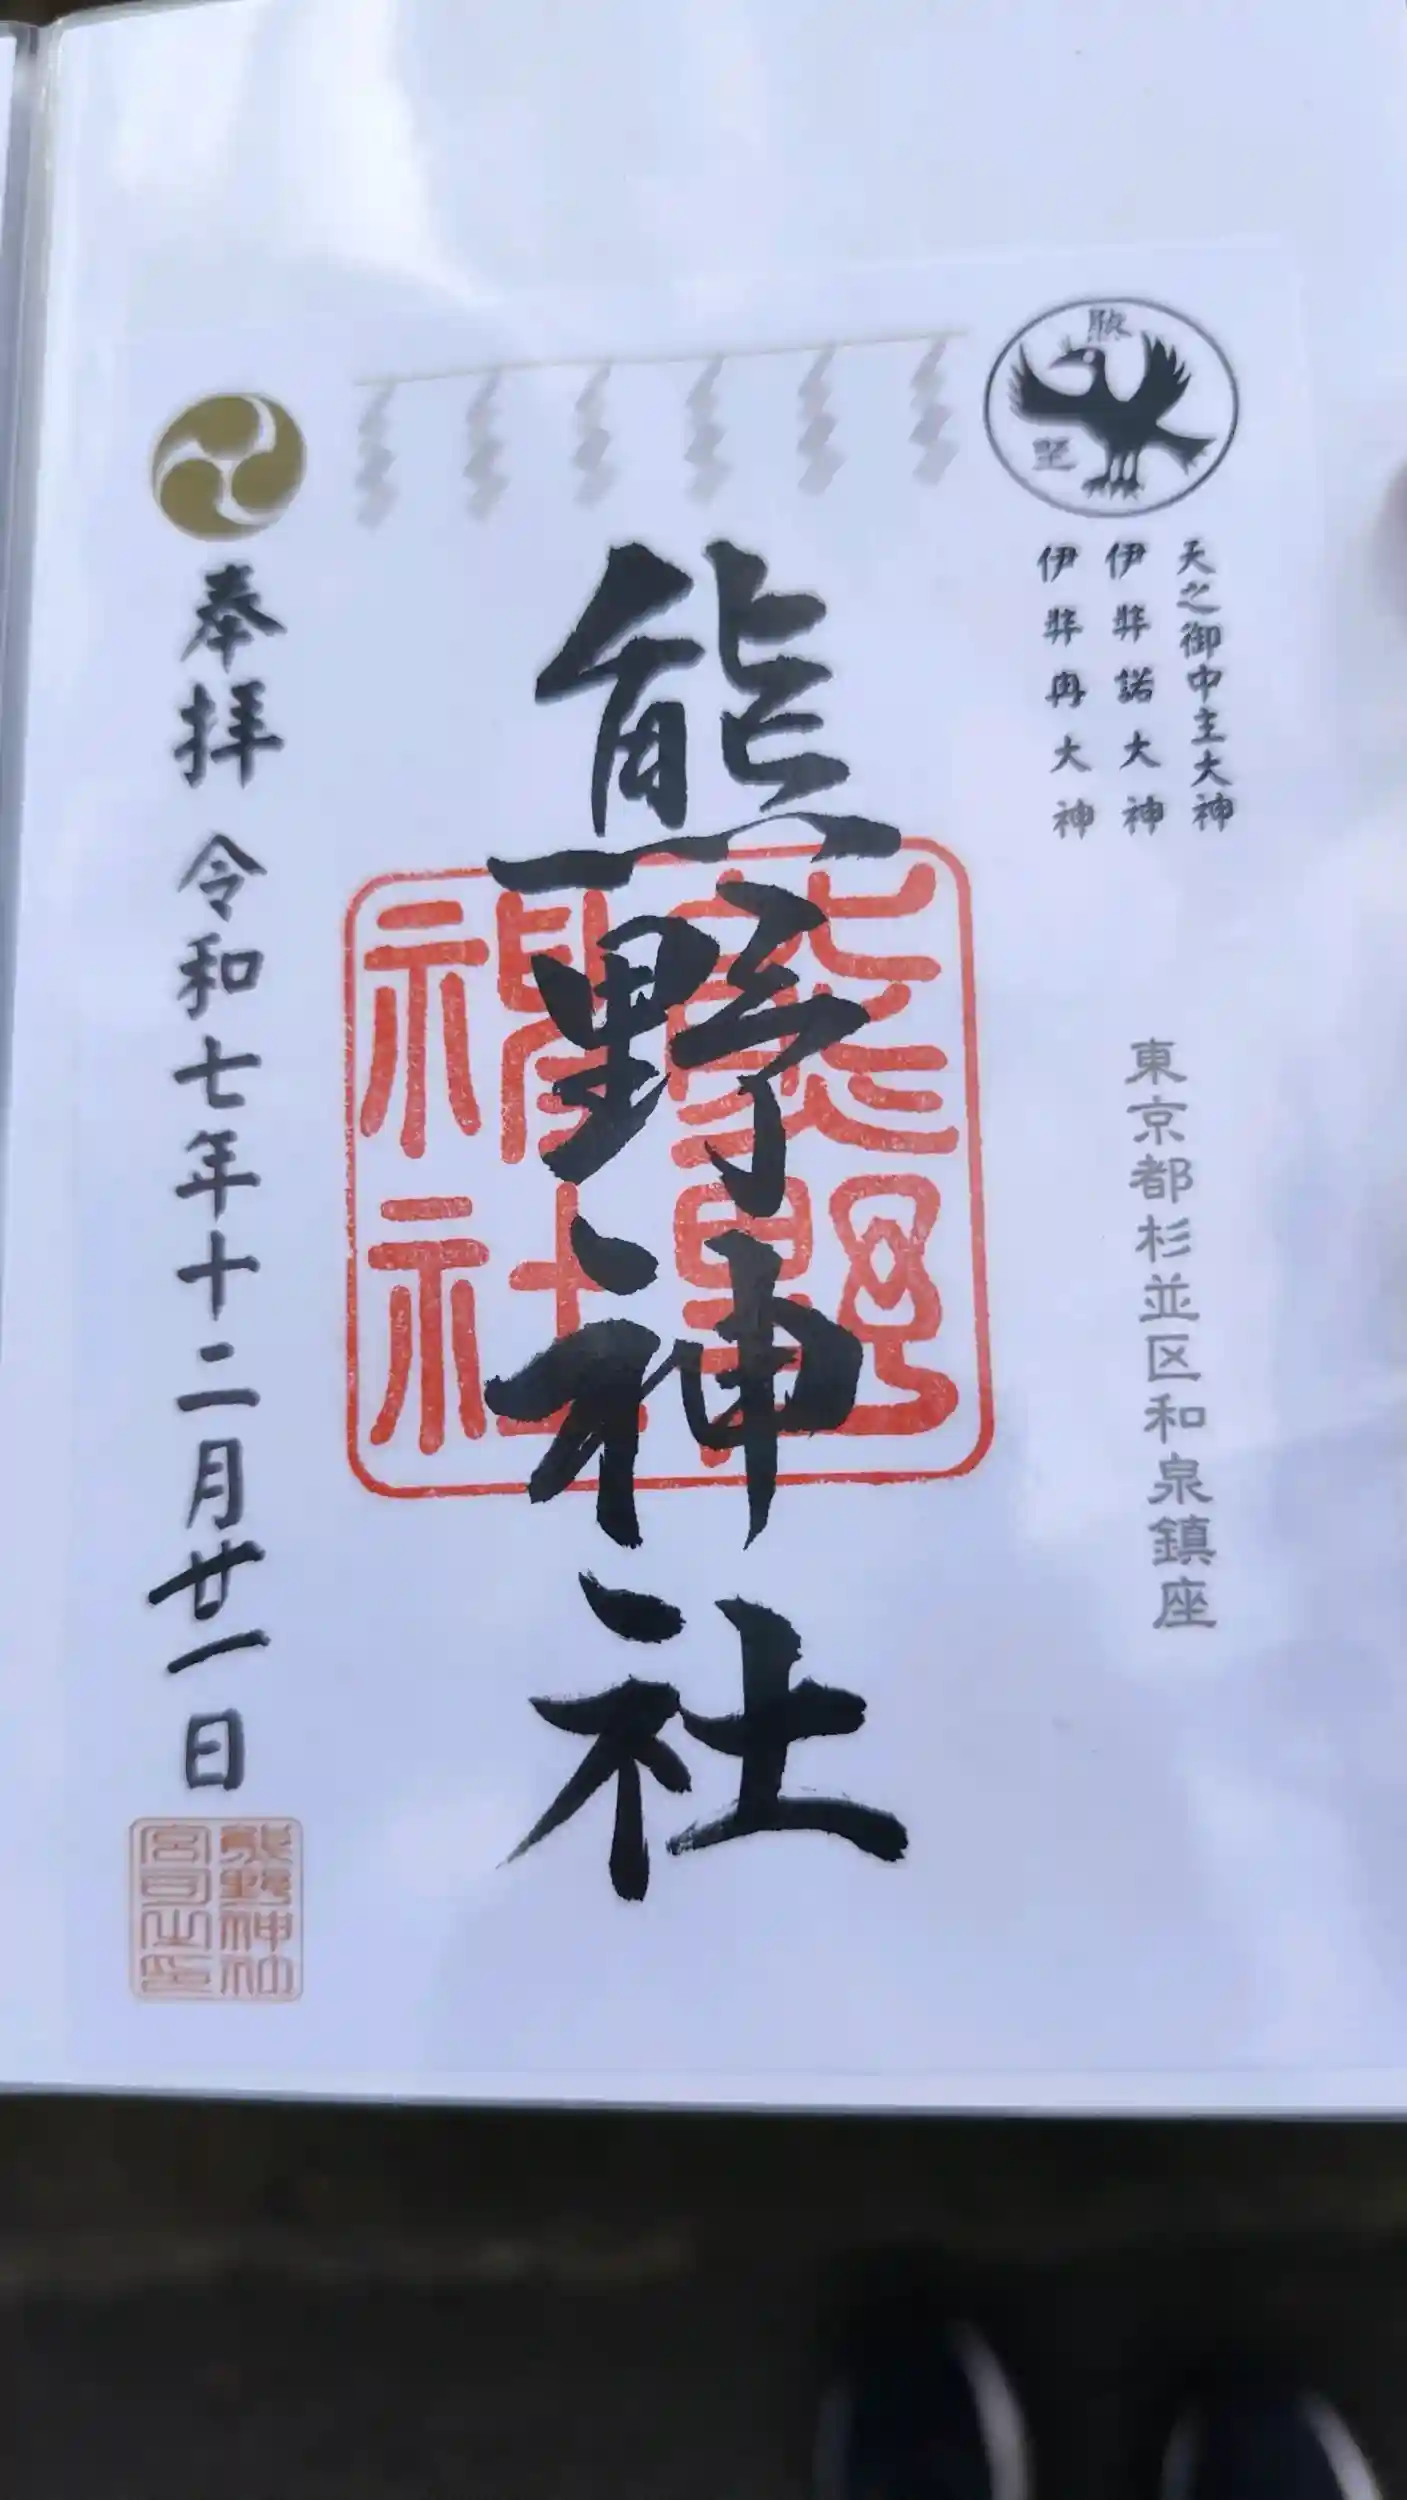 天之御中主大神
伊弉諾大神
伊弉冉大神
東京都杉並区和泉鎮座
熊野神社
熊野
神社
奉拝 令和七年十二月廿一日
熊野神社
宮司之印